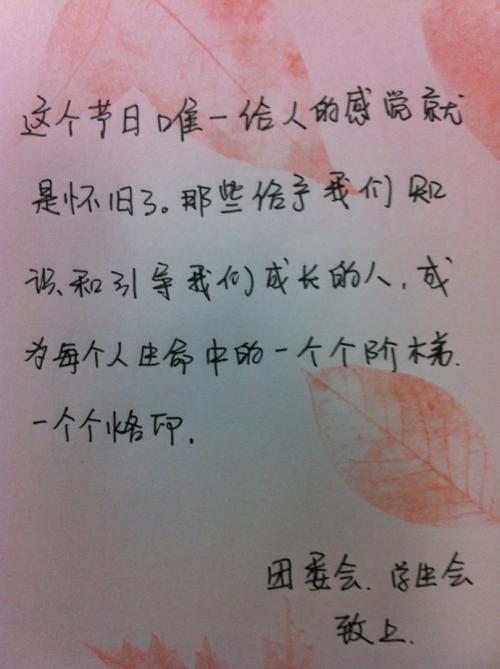 这个节日唯一给人的感觉就
是怀旧了。那些给予我们知
识和引导我们成长的人,成
为每个人生命中的一个个阶梯.
一个个烙印.
团委会.学生会
致上.